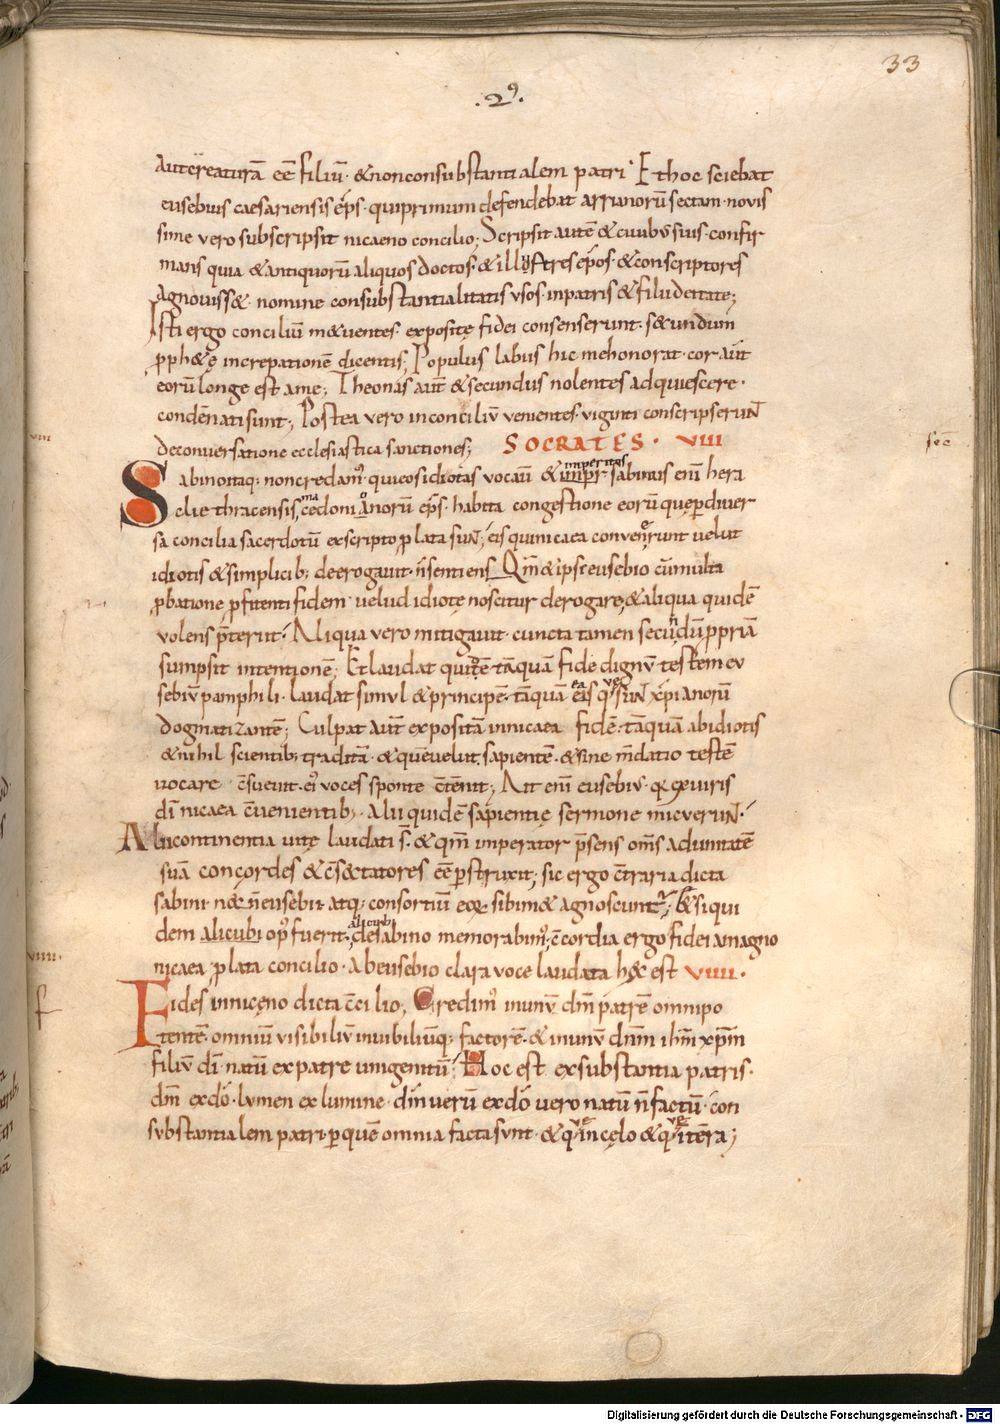 33
.29.
aut creaturā eē filiū· & non consubstantialem patri· Et hoc sciebat
eusebius caesariensis ep̄s· qui primum defendebat arrianorū sectam· novis
sime vero subscripsit nicaeno concilio; Scripsit autē & cuubus suis· confir
mans quia & antiquorū aliquos doctos· & illustres ep̄os· & conscriptores
agnovisse· nomine consubstantialitatis usos· in patris & filii deitate;
Isti ergo conciliū in&uentes· expositę fidei consenserunt· secundum
pph&ę increpationē dicentis; Populus labiis hic me honorat· cor aūt
eorū longe est a me; Theonas aūt & secundus nolentes adquiescere·
condēnati sunt; Postea vero in conciliū venientes· viginti conscripserunt
viii
de conversatione ecclesiastica sanctiones; SOCRATES· VIII
Sabino itaq; non credam' qui eos idiotas vocavit & imperitos sabinus enī hera
clie thracensis, macedonianorū ep̄s· habita congestione eorū quę p diver
sa concilia sacerdotū ex scripto plata sunt; eis qui nicaea convenerunt velut
idiotis & simplicib; derogavit· n̄ sentiens Qm̄ & ipse eusebio cū multa
pbatione pfitenti fidem· velud idiotę noscitur derogare; & aliqua quidē
volens p̄terit· Aliqua vero mitigavit· cuncta tamen secundū ppriā
sumpsit intentionē; Et laudat quidē tāquā fide dignū testem eu
sebiū pamphili· laudat simul & principē· tāquā ea quę sunt xp̄ianorū
dogmatizantē; Culpat aūt expositā in nicaea fidē· tāquā ab idiotis
& nihil scientib; traditā· & quē velut sapientē· & sine m̄datio testē
vocare c̄suevit· ei' voces sponte c̄tēnit; Ait enī eusebius· q̄ ex viris
dī nicaea c̄venientib;· Alii quidē sapientię sermone micuerunt·
Alii continentia vitę laudati s̄· & qm̄ imperator p̄sens om̄s ad unitatē
suā concordes & c̄sectatores eē pstruxit; sic ergo c̄traria dicta
sabini· nec n̄ eusebii· atq; consortiū eoꝝ sibim& agnoscunt'; & si qui
dem alicubi op' fuerit· alicubi de sabino memorabim'; c̄cordia ergo fidei a magno
viiii·
nicaea plata concilio· ab eusebio clara voce laudata hęc est VIIII·
Fides in nicęno dicta c̄cilio; Credim' in unū dm̄ patrē omnipo
tentē· omniū visibiliū invibiliūq; factorē· & in unū dn̄m ih̄m xp̄m
filiū dī natū ex patre unigenitū· Hoc est ex substantia patris·
dm̄ ex dō· lumen ex lumine· dm̄ verū ex dō vero natū n̄ factū· con
substantialem patri· p quē omnia facta sunt· & quę in cęlo & quę in terra;